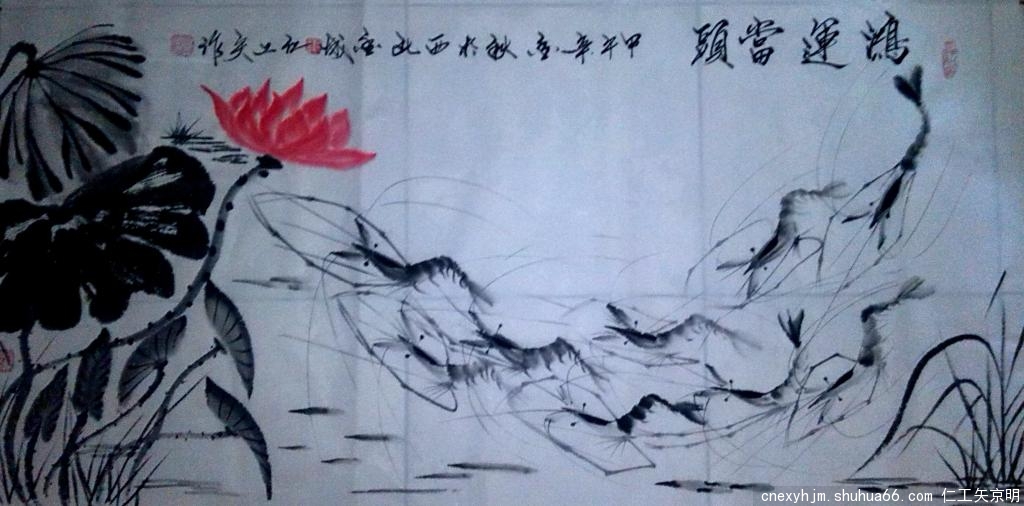 鴻運當頭
甲午年秋於西北城仁工矢作
cnexyhjm.shuhua66.com 仁工矢京明